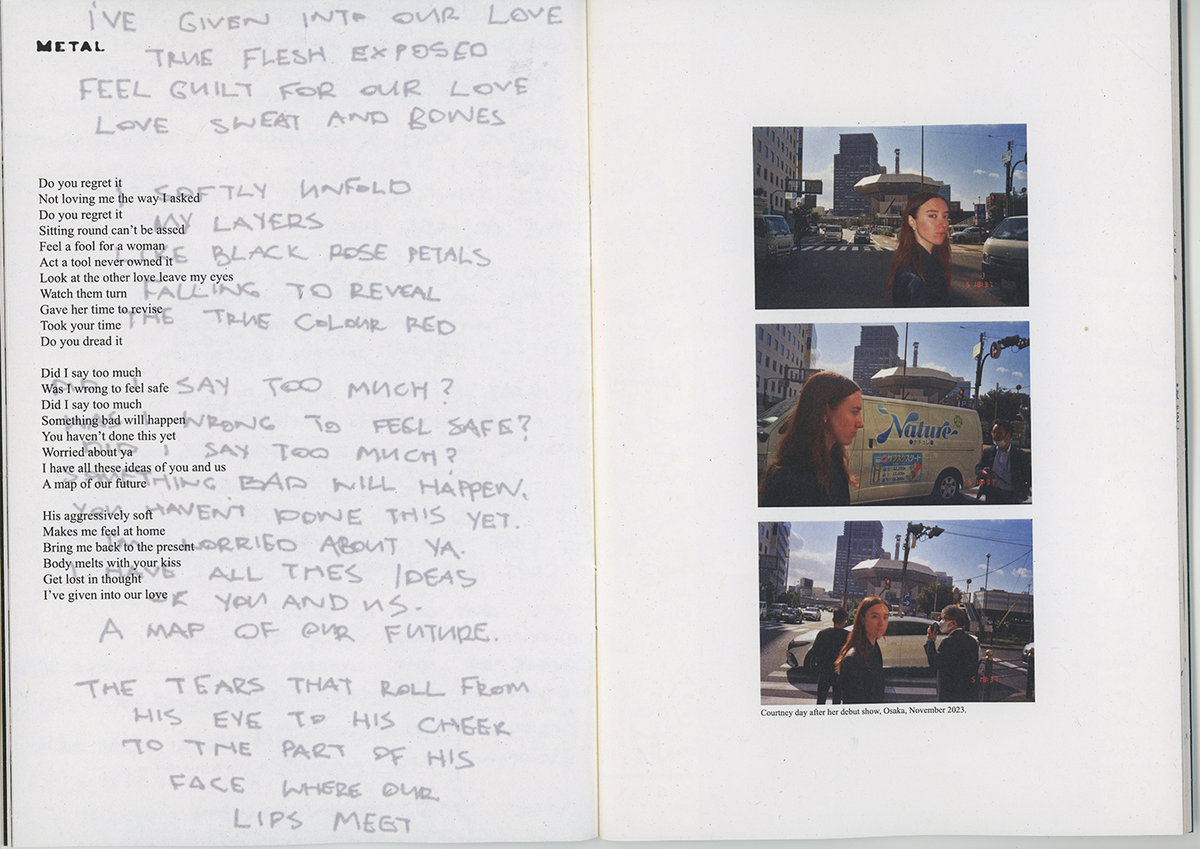 I'VE GIVEN INTO OUR LOVE
TRUE FLESH EXPOSED
FEEL GUILT FOR OUR LOVE
LOVE SWEAT AND BONES
I SOFTLY UNFOLD
MY LAYERS
LIKE BLACK ROSE PETALS
FALLING TO REVEAL
THE TRUE COLOUR RED
DID I SAY TOO MUCH?
WAS I WRONG TO FEEL SAFE?
DID I SAY TOO MUCH?
SOMETHING BAD WILL HAPPEN.
YOU HAVENT DONE THIS YET.
I'M WORRIED ABOUT YA.
I HAVE ALL THES IDEAS
OF YOU AND US.
A MAP OF OUR FUTURE.
THE TEARS THAT ROLL FROM
HIS EYE TO HIS CHEEK
TO THE PART OF HIS
FACE WHERE OUR
LIPS MEET
METAL
Do you regret it
Not loving me the way I asked
Do you regret it
Sitting round can't be assed
Feel a fool for a woman
Act a tool never owned it
Look at the other love leave my eyes
Watch them turn
Gave her time to revise
Took your time
Do you dread it
Did I say too much
Was I wrong to feel safe
Did I say too much
Something bad will happen
You haven't done this yet
Worried about ya
I have all these ideas of you and us
A map of our future
His aggressively soft
Makes me feel at home
Bring me back to the present
Body melts with your kiss
Get lost in thought
I've given into our love
Nature
Courtney day after her debut show, Osaka, November 2023.